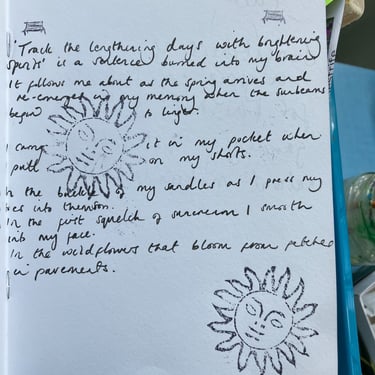 'Track the lengthening days with brightening
spirits' is a sentence burned into my brain
It follows me about as the spring arrives and
re-emerges in my memory when the sunbeams
begin to linger.
I carry it in my pocket when
pull on my shorts.
In the buckle of my sandles as I press my
toes into them.
In the first squelch of suncream I smooth
into my face.
In the wildflowers that bloom from patches
in pavements.